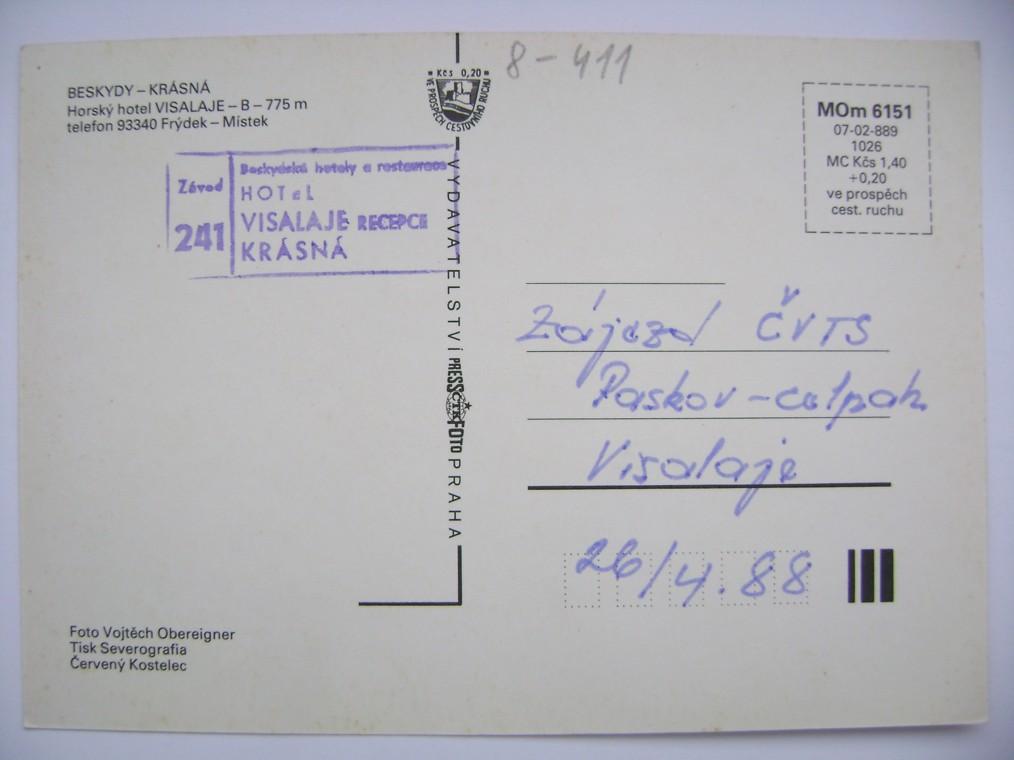 BESKYDY – KRÁSNÁ
Horský hotel VISALAJE – B – 775 m
telefon 93340 Frýdek – Místek
Kčs 0,20
VE PROSPĚCH CESTOVNÍHO RUCHU
8-411
MOm 6151
07-02-889
1026
MC Kčs 1,40
+0,20
ve prospěch
cest. ruchu
Závod
241
Beskydské hotely a restaurace
HOTeL
VISALAJE RECEPCE
KRÁSNÁ
VYDAVATELSTVÍ PRESSFOTO PRAHA
ČTK
Zájezd ČVTS
Paskov -
Visalaje
26/4.88
Foto Vojtěch Obereigner
Tisk Severografia
Červený Kostelec